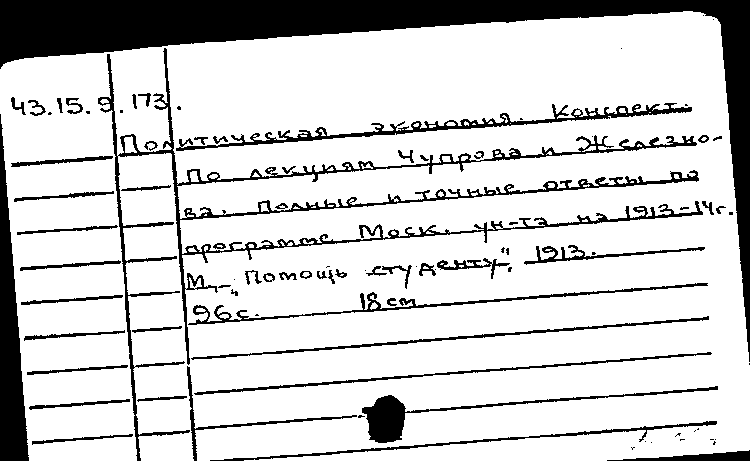 43.15.9.173.
Политическая экономия. Конспект.
По лекциям Чупрова и Железно-
ва. Полные и точные ответы по
программе Моск. ун-та на 1913-14г.
М., "Помощь студенту", 1913.
96с. 18см